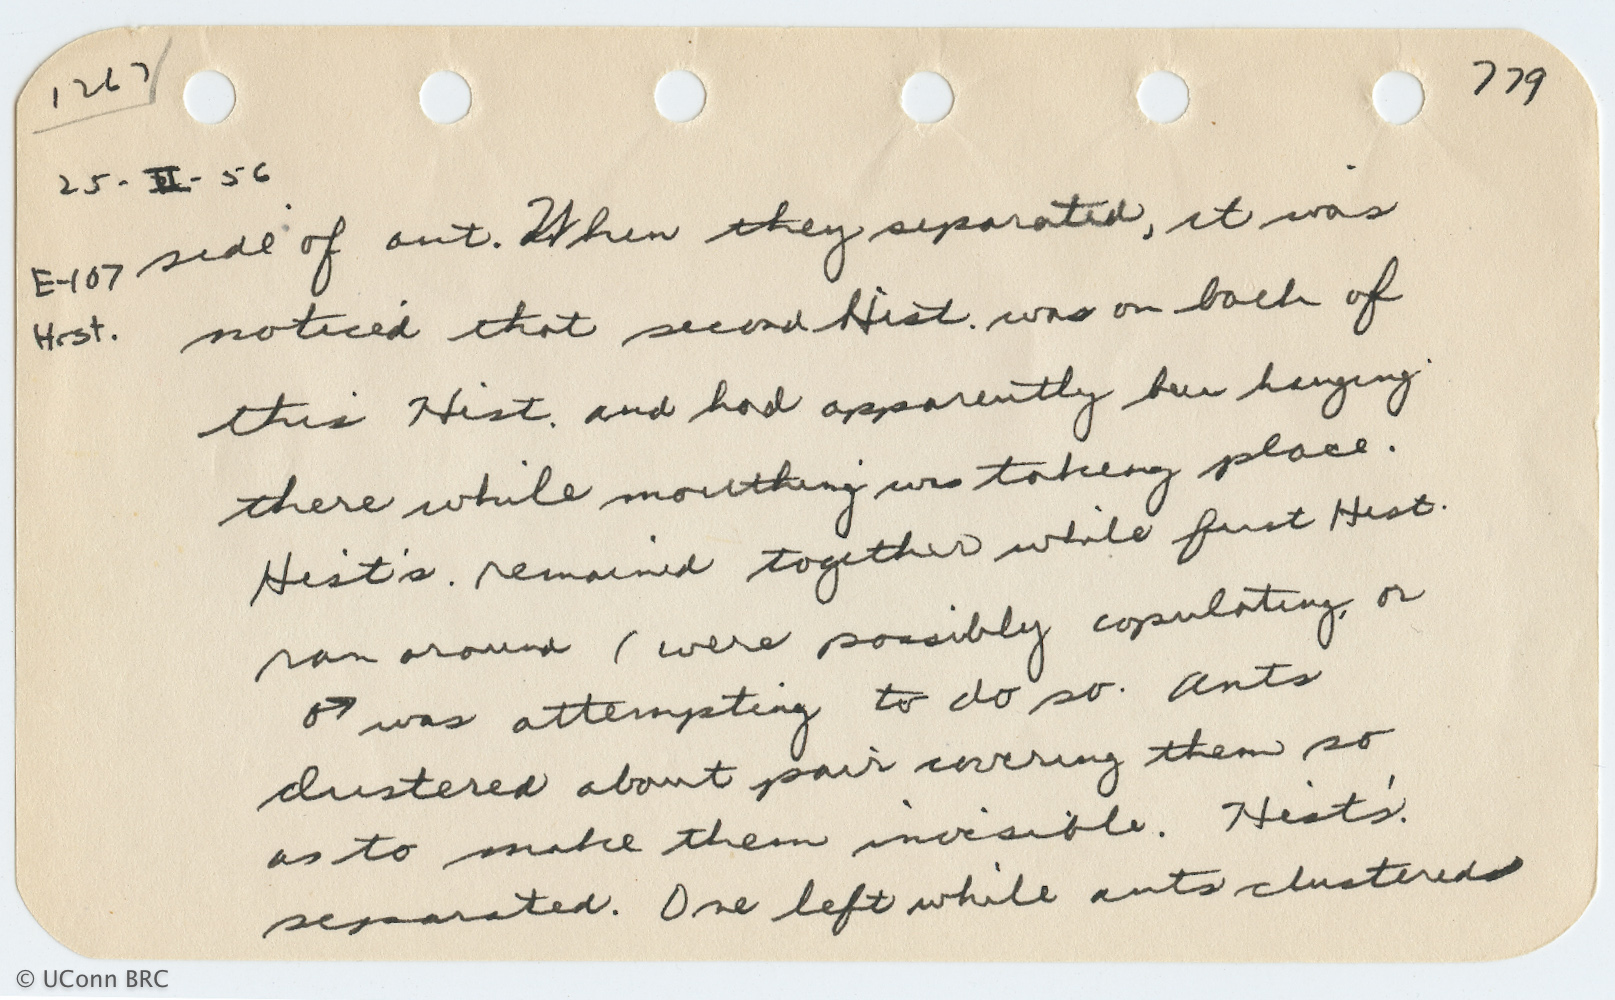 1267
779
25-II-56
side of ant. When they separated, it was
E-107
Hist.
noticed that second Hist. was on back of
this Hist. and had apparently been hanging
there while mouthing was taking place.
Hist's. remained together while first Hist.
ran around (were possibly copulating, or
♂ was attempting to do so. Ants
clustered about pair covering them so
as to make them invisible. Hist's.
separated. One left while ants clustered
© UConn BRC